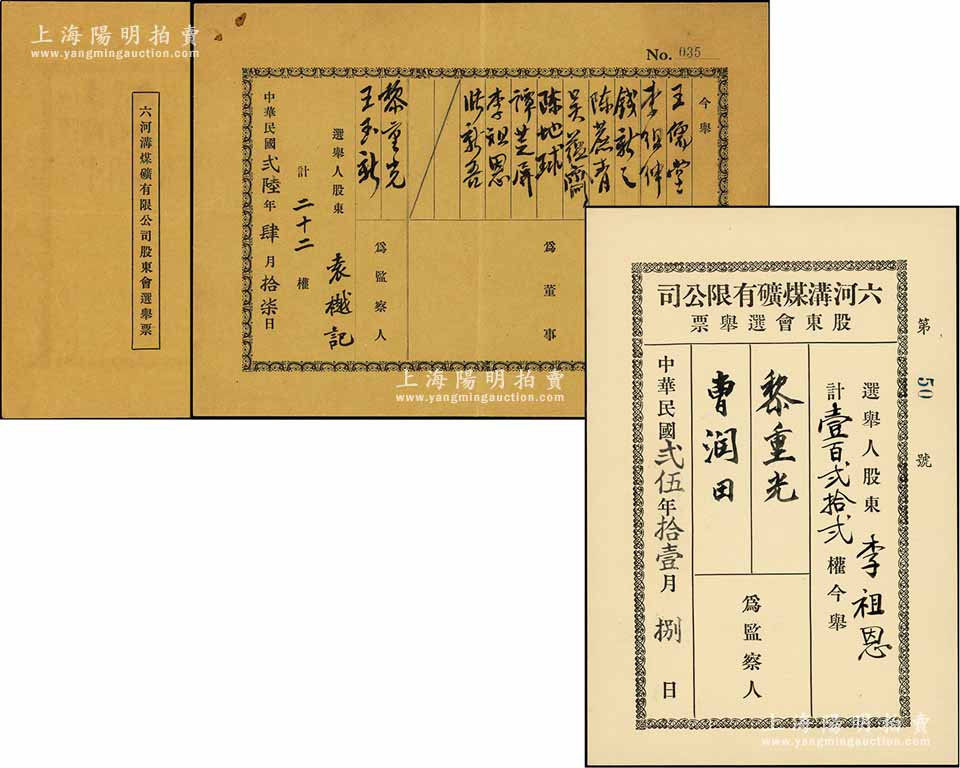 上海陽明拍賣
www.yangmingauction.com
六河溝煤礦有限公司股東會選舉票
上海陽明拍賣
www.yangmingauction.com
No. 035
今舉
王儒堂
李組紳
錢新之
陈蔗青
吴蕴齋
陈地球
譚芝屏
李祖恩
爲董事
黎重光
王玉新
爲監察人
選舉人股東 袁樾記
計 二十二 權
中華民國 弍陸 年 肆 月 拾柒 日
上海陽明拍賣
www.yangmingauction.com
第 50 號
六河溝煤礦有限公司
股東會選舉票
選舉人股東 李祖恩
計壹百弍拾弍權今舉
黎重光
曹润田
爲監察人
中華民國弍伍年拾壹月 捌 日
上海陽明拍賣
www.yangmingauction.com